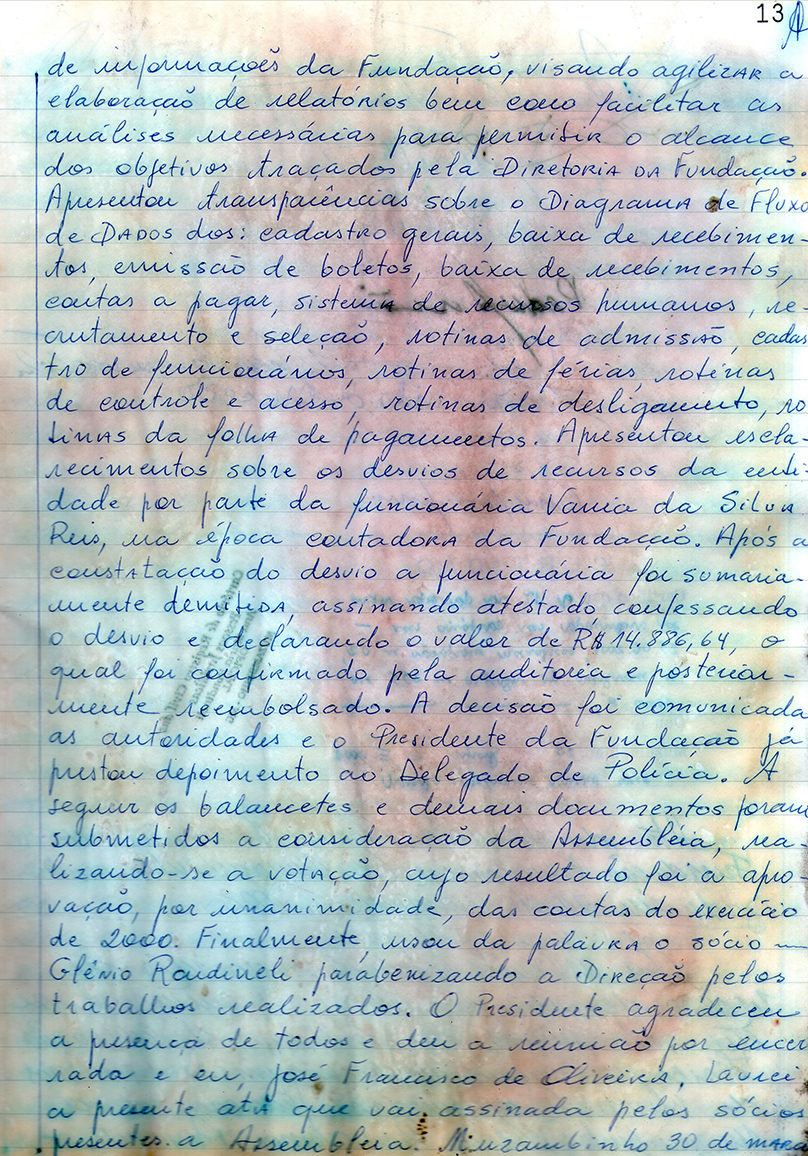 13
de informações da Fundação, visando agilizar a
elaboração de relatórios bem como facilitar as
análises necessárias para permitir o alcance
dos objetivos traçados pela Diretoria da Fundação.
Apresentou transparências sobre o Diagrama de Fluxo
de Dados dos: cadastro gerais, baixa de recebimen-
tos, emissão de boletos, baixa de recebimentos,
contas a pagar, sistema de recursos humanos, re
crutamento e seleção, rotinas de admissão, cadas
tro de funcionários, rotinas de férias, rotinas
de controle e acesso, rotinas de desligamento, ro
tinas da folha de pagamentos. Apresentou escla-
recimentos sobre os desvios de recursos da enti-
dade por parte da funcionária Vania da Silva
Reis, na época contadora da Fundação. Após a
constatação do desvio a funcionária foi sumaria-
mente demitida, assinando atestado, confessando
o desvio e declarando o valor de R$ 14.886,64, o
qual foi confirmado pela auditoria e posterior-
mente reembolsado. A decisão foi comunicada
as autoridades e o Presidente da Fundação já
prestou depoimento ao Delegado de Polícia. A
seguir os balancetes e demais documentos foram
submetidos a consideração da Assembléia, rea-
lizando-se a votação, cujo resultado foi a apro-
vação, por unanimidade, das contas do exercício
de 2000. Finalmente, usou da palavra o sócio
Glênio Rondineli parabenizando a Direção pelos
trabalhos realizados. O Presidente agradeceu
a presença de todos e deu a reunião por encer
rada e eu, José Francisco de Oliveira, lavrei
a presente ata que vai assinada pelos sócios
presentes a Assembleia. Muzambinho 30 de março